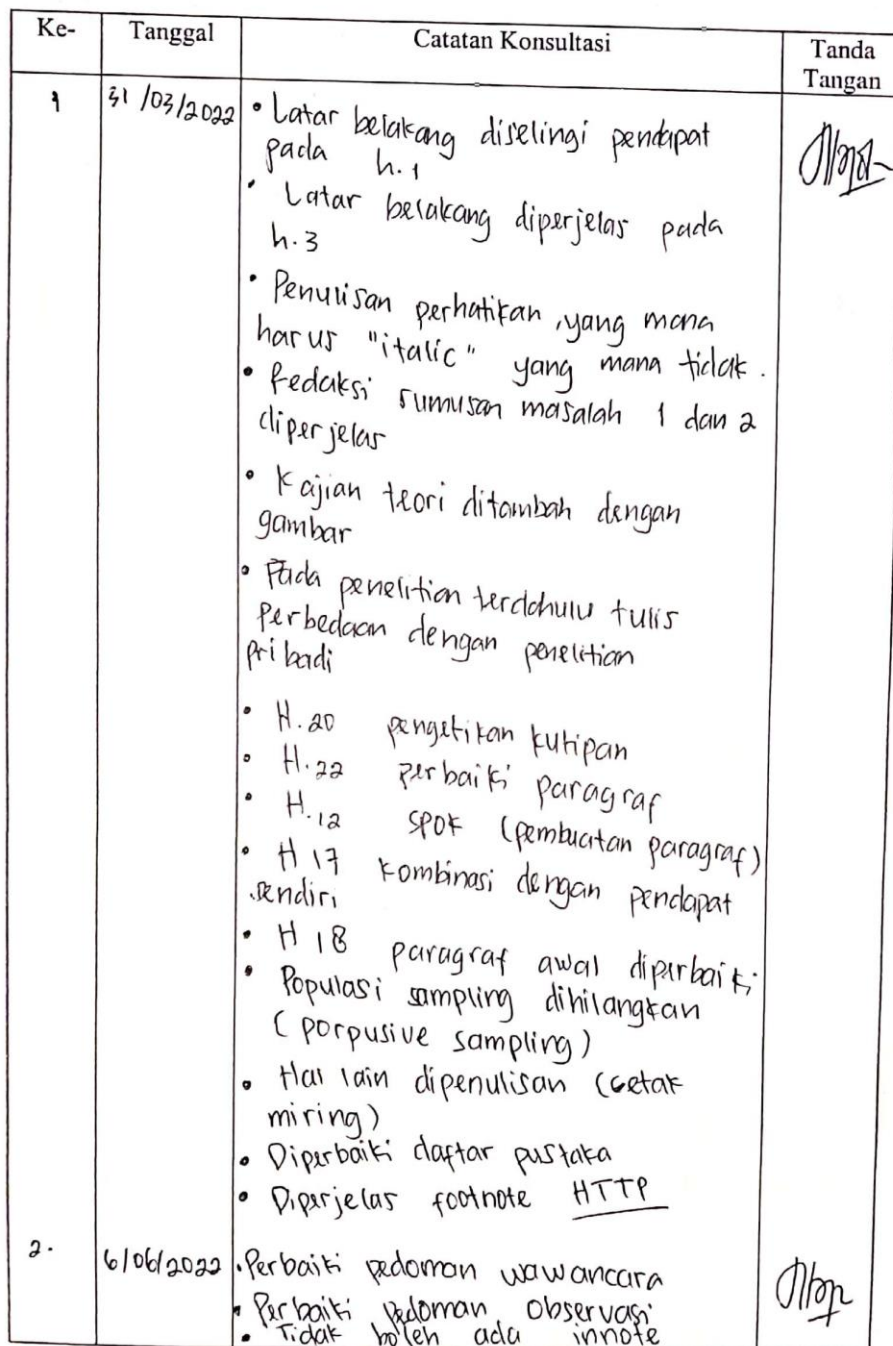 Ke- Tanggal Catatan Konsultasi Tanda
Tangan
1 31/03/2022 • Latar belakang diselingi pendapat
pada h.1
• Latar belakang diperjelas pada
h.3
• Penulisan perhatikan, yang mana
harus "italic" yang mana tidak.
• Redaksi rumusan masalah 1 dan 2
diperjelas
• Kajian teori ditambah dengan
gambar
• Pada penelitian terdahulu tulis
perbedaan dengan penelitian
pribadi
• H.20 pengetikan kutipan
• H.22 perbaiki paragraf
• H.12 SPOK (pembuatan paragraf)
• H 17 kombinasi dengan pendapat
sendiri
• H 18 paragraf awal diperbaiki
• Populasi sampling dihilangkan
(porpusive sampling)
• Hal lain dipenulisan (cetak
miring)
• Diperbaiki daftar pustaka
• Diperjelas footnote HTTP
2. 6/06/2022 • Perbaiki pedoman wawancara
• Perbaiki pedoman observasi
• Tidak boleh ada innote